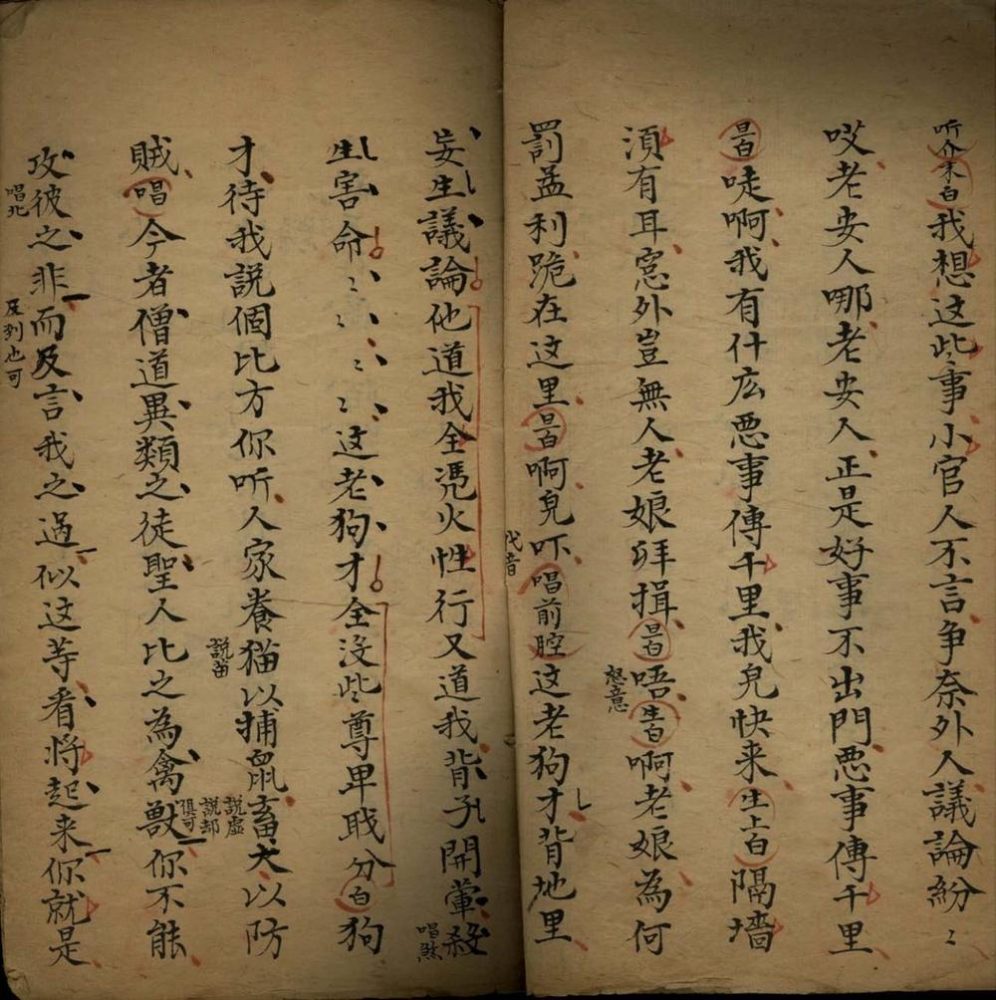 听介末白我想这些事小官人不言争奈外人議論紛〻
哎老安人哪老安人正是好事不出門恶事傳千里
旦白唗啊我有什庅恶事傳千里我兒快来生上白隔墻
湏有耳窓外豈無人老娘拜揖旦白唔怒意生白啊老娘為何
罰孟利跪在这里旦白啊兒吓代音唱前腔这老狗才背地里
妄生議論他道我全凴火性行又道我背子開葷殺唱煞
生害命〻〻〻〻这老狗才全沒些尊卑戝分白狗
才待我説個比方你听人家養猫説苗以捕鼠畜説虚説郄俱可犬以防
賊唱今者僧道異類之徒聖人比之為禽獸你不能
攻彼唱北之非而及反列也可言我之過似这等看將起来你就是